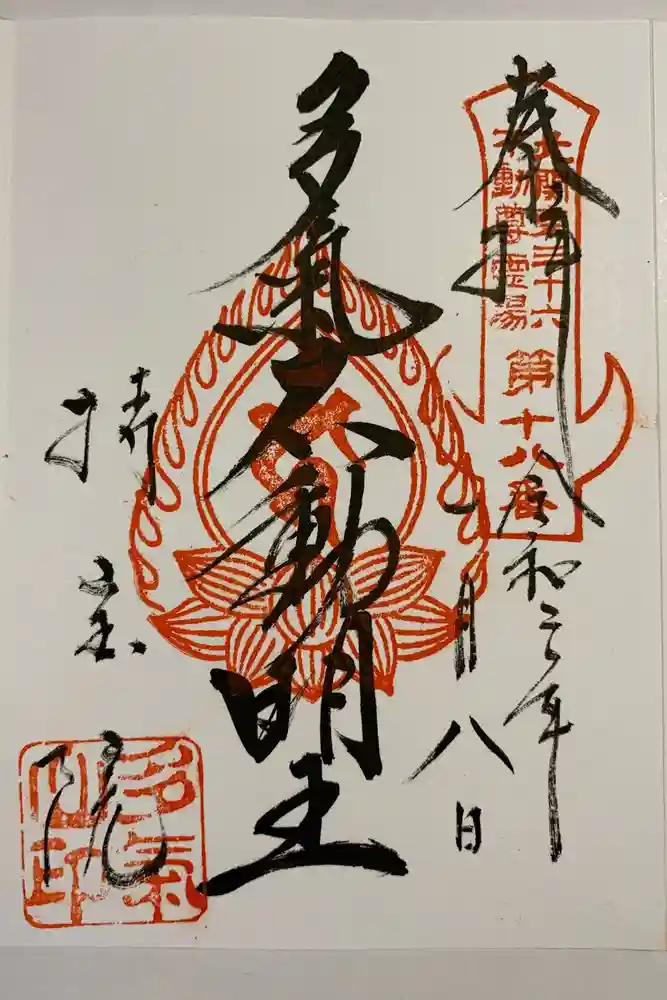 奉拝
北関東三十六
不動尊霊場
第十八番
令和二年
九月八日
多氣不動明王
持宝院
多氣
山印